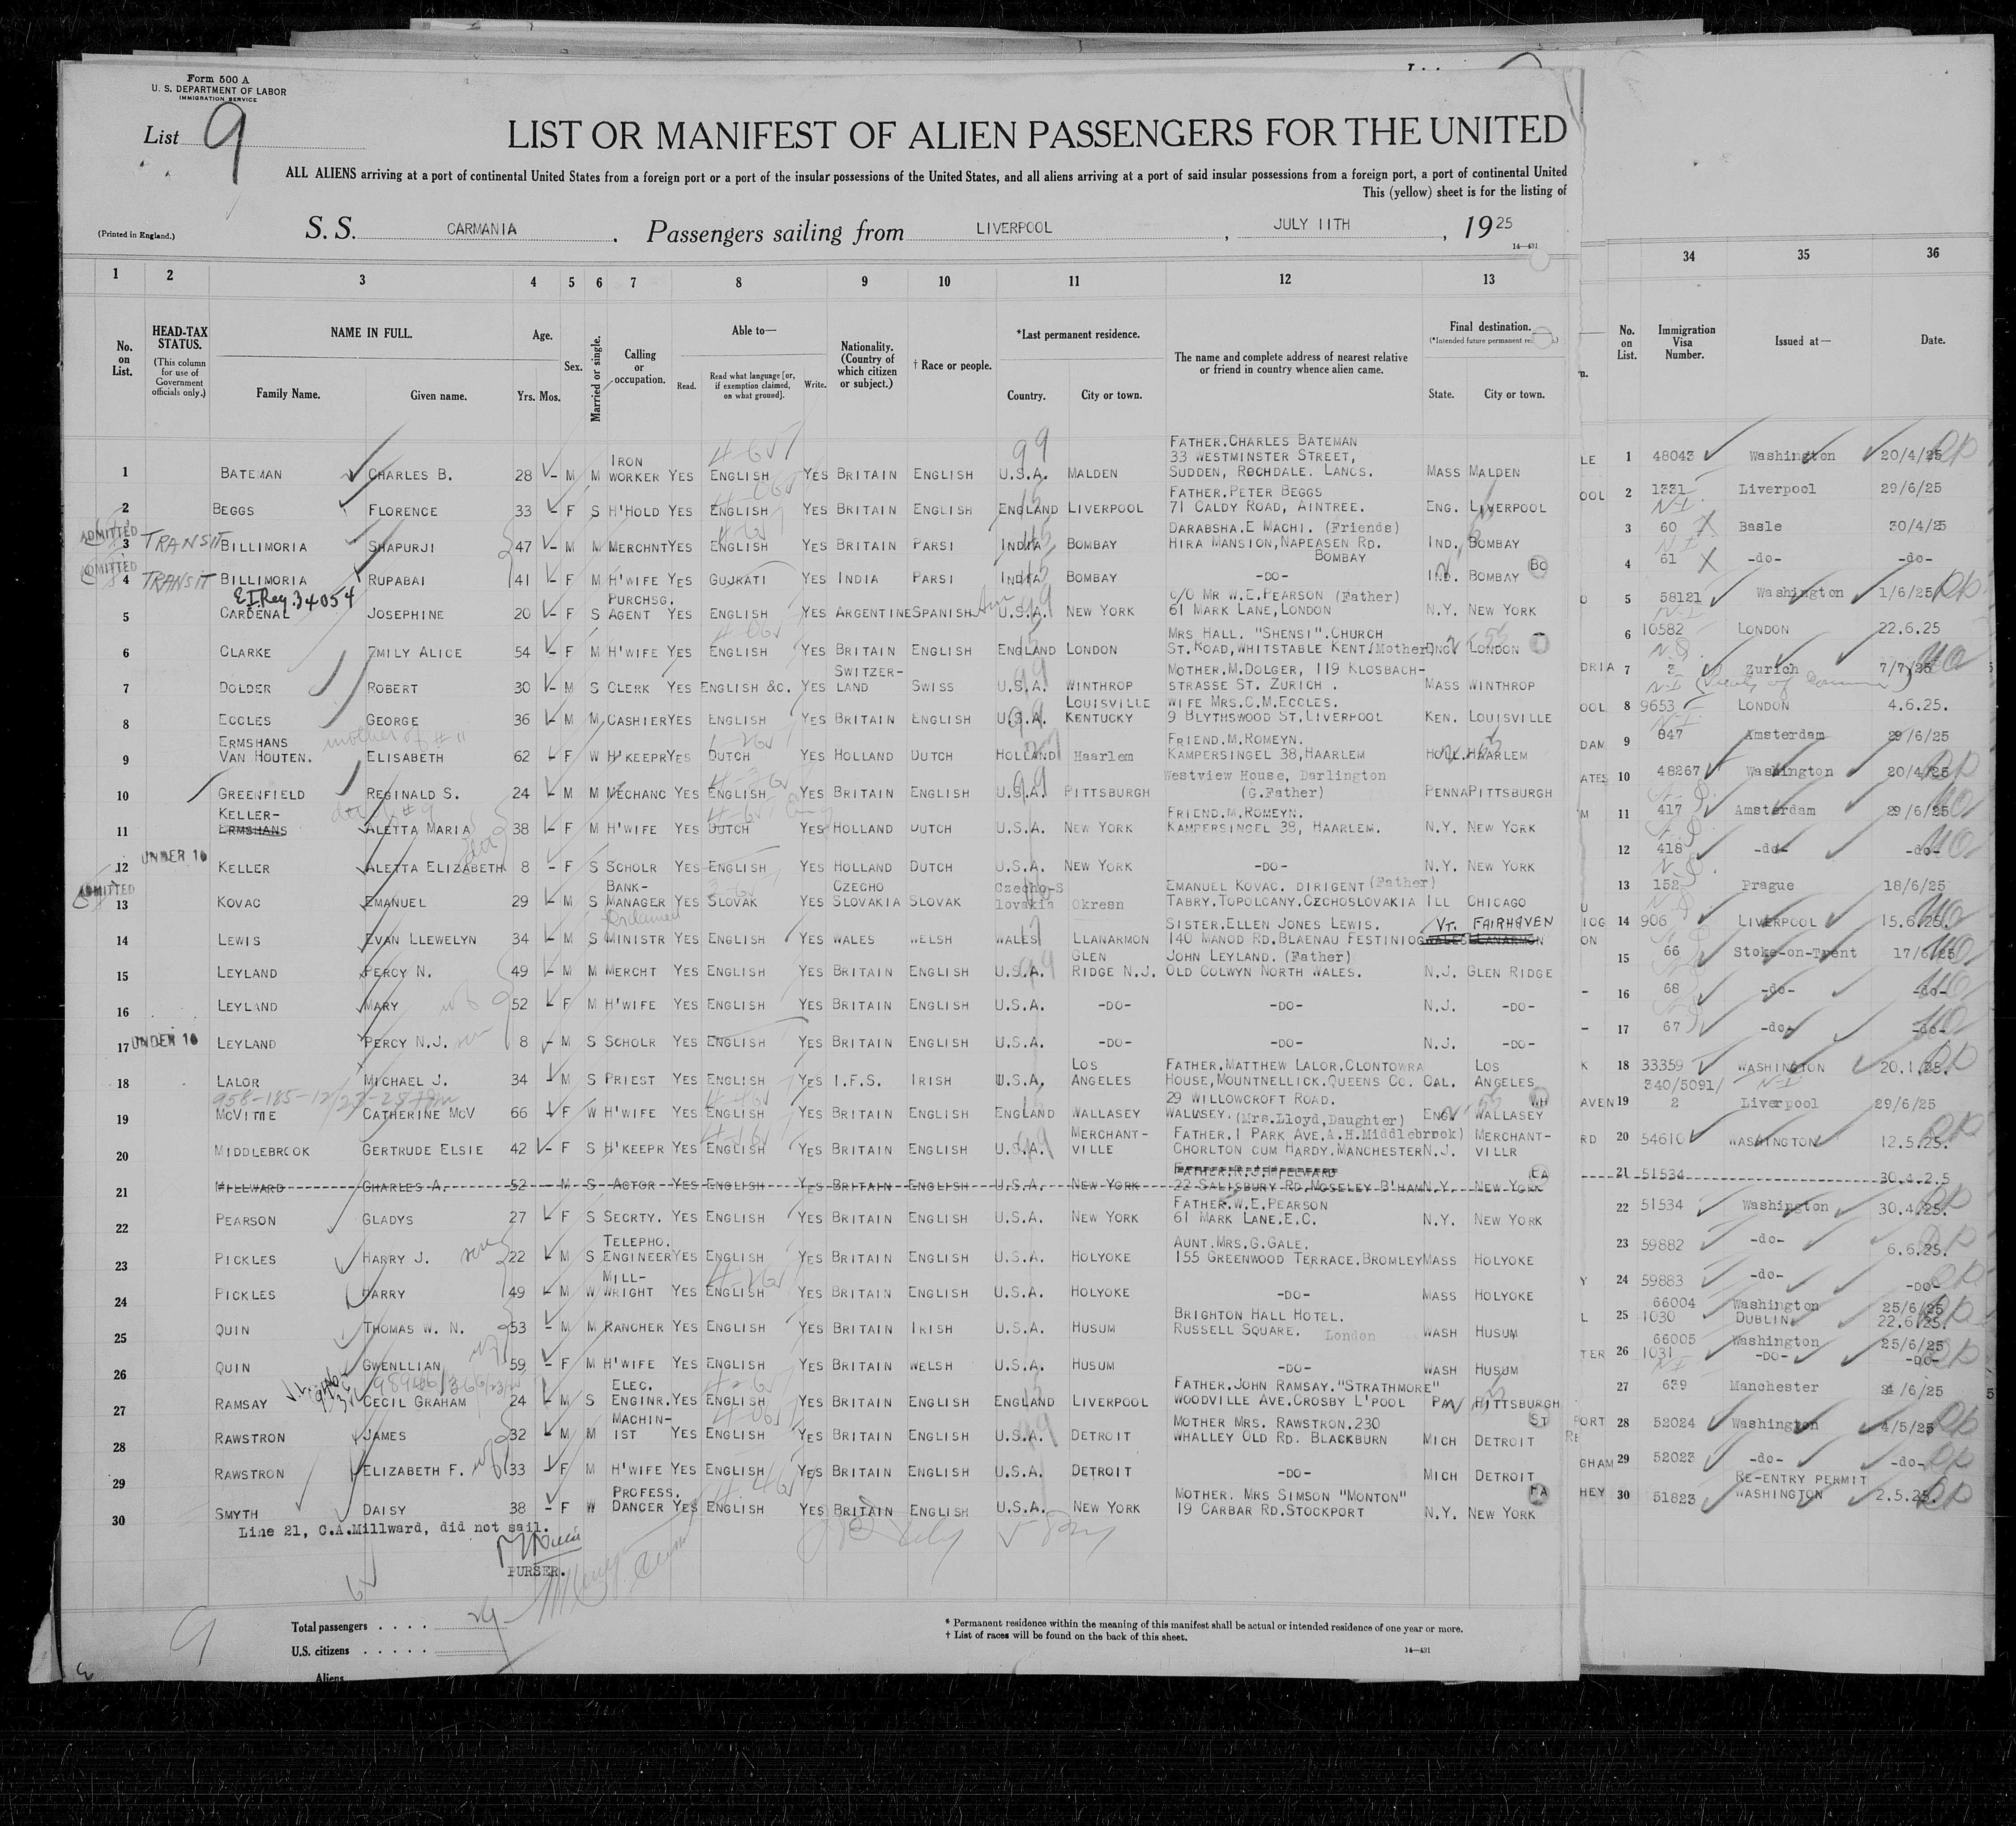 Form 500 A
U. S. DEPARTMENT OF LABOR
IMMIGRATION SERVICE
List 9
LIST OR MANIFEST OF ALIEN PASSENGERS FOR THE UNITED
ALL ALIENS arriving at a port of continental United States from a foreign port or a port of the insular possessions of the United States, and all aliens arriving at a port of said insular possessions from a foreign port, a port of continental United
This (yellow) sheet is for the listing of
(Printed in England.) S. S. CARMANIA. Passengers sailing from LIVERPOOL, JULY 11TH, 1925
14—431
1 2 3 4 5 6 7 8 9 10 11 12 13 34 35 36
No. on List. HEAD-TAX STATUS. (This column for use of Government officials only.) NAME IN FULL. Family Name. Given name. Age. Yrs. Mos. Sex. Married or single. Calling or occupation. Able to— Read. Read what language [or, if exemption claimed, on what ground]. Write. Nationality. (Country of which citizen or subject.) † Race or people. *Last permanent residence. Country. City or town. The name and complete address of nearest relative or friend in country whence alien came. Final destination. State. City or town. No. on List. Immigration Visa Number. Issued at— Date.
1 BATEMAN CHARLES B. 28 - M M IRON WORKER YES ENGLISH YES BRITAIN ENGLISH U.S.A. MALDEN FATHER.CHARLES BATEMAN 33 WESTMINSTER STREET, SUDDEN, ROCHDALE. LANCS. MASS MALDEN LE 1 48043 Washington 20/4/25
2 BEGGS FLORENCE 33 - F S H'HOLD YES ENGLISH YES BRITAIN ENGLISH ENGLAND LIVERPOOL FATHER.PETER BEGGS 71 CALDY ROAD, AINTREE. ENG. LIVERPOOL OOL 2 1331 Liverpool 29/6/25
ADMITTED 3 TRANSIT BILLIMORIA SHAPURJI 47 - M M MERCHNT YES ENGLISH YES BRITAIN PARSI INDIA BOMBAY DARABSHA.E MACHI. (Friends) HIRA MANSION,NAPEASEN RD. BOMBAY IND. BOMBAY 3 60 Basle 30/4/25
ADMITTED 4 TRANSIT BILLIMORIA RUPABAI 41 - F M H'WIFE YES GUJRATI YES INDIA PARSI INDIA BOMBAY -DO- IND. BOMBAY BO 4 61 -do- -do-
E.I.Reg.34054
5 CARDENAL JOSEPHINE 20 - F S PURCHSG. AGENT YES ENGLISH YES ARGENTINE SPANISH U.S.A. NEW YORK C/O MR W.E.PEARSON (Father) 61 MARK LANE,LONDON N.Y. NEW YORK O 5 58121 Washington 1/6/25
6 CLARKE EMILY ALICE 54 - F M H'WIFE YES ENGLISH YES BRITAIN ENGLISH ENGLAND LONDON MRS HALL. "SHENSI".CHURCH ST.ROAD,WHITSTABLE KENT.(Mother) ENG. LONDON 6 10582 LONDON 22.6.25
7 DOLDER ROBERT 30 - M S CLERK YES ENGLISH &C. YES SWITZER-LAND SWISS U.S.A. WINTHROP MOTHER.M.DOLGER, 119 KLOSBACH-STRASSE ST. ZURICH . MASS WINTHROP DRIA 7 3 Zurich 7/7/25
8 ECCLES GEORGE 36 - M M CASHIER YES ENGLISH YES BRITAIN ENGLISH U.S.A. LOUISVILLE KENTUCKY WIFE MRS.C.M.ECCLES. 9 BLYTHSWOOD ST.LIVERPOOL KEN. LOUISVILLE OOL 8 9653 LONDON 4.6.25.
mother of # 11
9 ERMSHANS VAN HOUTEN. ELISABETH 62 - F W H'KEEPR YES DUTCH YES HOLLAND DUTCH HOLLAND Haarlem FRIEND.M.ROMEYN. KAMPERSINGEL 38,HAARLEM HOLL. HAARLEM DAM 9 847 Amsterdam 29/6/25
10 GREENFIELD REGINALD S. 24 - M M MECHANC YES ENGLISH YES BRITAIN ENGLISH U.S.A. PITTSBURGH Westview House, Darlington (G.Father) PENNA PITTSBURGH ATES 10 48267 Washington 20/4/25
11 KELLER- ERMSHANS ALETTA MARIA 38 - F M H'WIFE YES DUTCH YES HOLLAND DUTCH U.S.A. NEW YORK FRIEND.M.ROMEYN. KAMPERSINGEL 38, HAARLEM. N.Y. NEW YORK M 11 417 Amsterdam 29/6/25
12 UNDER 16 KELLER ALETTA ELIZABETH 8 - F S SCHOLR YES ENGLISH YES HOLLAND DUTCH U.S.A. NEW YORK -DO- N.Y. NEW YORK 12 418 -do- -do-
ADMITTED 13 KOVAC EMANUEL 29 - M S BANK-MANAGER YES SLOVAK YES CZECHO SLOVAKIA SLOVAK Czecho-Slovakia Okresn EMANUEL KOVAC. DIRIGENT (Father) TABRY.TOPOLCANY.CZCHOSLOVAKIA ILL CHICAGO U 13 152 Prague 18/6/25
14 LEWIS EVAN LLEWELYN 34 - M S Ordained MINISTR YES ENGLISH YES WALES WELSH WALES LLANARMON SISTER.ELLEN JONES LEWIS. 140 MANOD RD.BLAENAU FESTINIOG VT. FAIRHAVEN WALES LLANARMON IOG 14 906 LIVERPOOL 15.6.25.
15 LEYLAND PERCY N. 49 - M M MERCHT YES ENGLISH YES BRITAIN ENGLISH U.S.A. GLEN RIDGE N.J. JOHN LEYLAND. (Father) OLD COLWYN NORTH WALES. N.J. GLEN RIDGE ON 15 66 Stoke-on-Trent 17/6/25
16 LEYLAND MARY 52 - F M H'WIFE YES ENGLISH YES BRITAIN ENGLISH U.S.A. -DO- -DO- N.J. -DO- - 16 68 -do- -do-
17 UNDER 16 LEYLAND PERCY N.J. son 8 - M S SCHOLR YES ENGLISH YES BRITAIN ENGLISH U.S.A. -DO- -DO- N.J. -DO- - 17 67 -do- -do-
18 LALOR MICHAEL J. 34 - M S PRIEST YES ENGLISH YES I.F.S. IRISH U.S.A. LOS ANGELES FATHER.MATTHEW LALOR.CLONTOWRA HOUSE,MOUNTNELLICK.QUEENS CO. CAL. LOS ANGELES K 18 33359 WASHINGTON 20.1.25.
19 MCVITTIE CATHERINE MCV 66 - F W H'WIFE YES ENGLISH YES BRITAIN ENGLISH ENGLAND WALLASEY 29 WILLOWCROFT ROAD. WALLASEY.(Mrs.Lloyd,Daughter) ENG. WALLASEY WH AVEN 19 340/5091/2 Liverpool 29/6/25
20 MIDDLEBROOK GERTRUDE ELSIE 42 - F S H'KEEPR YES ENGLISH YES BRITAIN ENGLISH U.S.A. MERCHANT-VILLE FATHER.1 PARK AVE.A.H.Middlebrook) CHORLTON CUM HARDY.MANCHESTER N.J. MERCHANT-VILLR RD 20 54610 WASHINGTON 12.5.25.
21 MILLWARD CHARLES A. 52 - M S ACTOR YES ENGLISH YES BRITAIN ENGLISH U.S.A. NEW YORK 22 SALISBURY RD.MOSELEY B'HAM N.Y. NEW YORK 21 51534 30.4.2.5
22 PEARSON GLADYS 27 - F S SECRTY. YES ENGLISH YES BRITAIN ENGLISH U.S.A. NEW YORK FATHER.W.E.PEARSON 61 MARK LANE.E.C. N.Y. NEW YORK 22 51534 Washington 30.4.25.
23 PICKLES HARRY J. son 22 - M S TELEPHO. ENGINEER YES ENGLISH YES BRITAIN ENGLISH U.S.A. HOLYOKE AUNT.MRS.G.GALE. 155 GREENWOOD TERRACE.BROMLEY MASS HOLYOKE 23 59882 -do- 6.6.25.
24 PICKLES HARRY 49 - M W MILL-WRIGHT YES ENGLISH YES BRITAIN ENGLISH U.S.A. HOLYOKE -DO- MASS HOLYOKE Y 24 59883 -do- -DO-
25 QUIN THOMAS W. N. 53 - M M RANCHER YES ENGLISH YES BRITAIN IRISH U.S.A. HUSUM BRIGHTON HALL HOTEL. RUSSELL SQUARE. London WASH HUSUM L 25 66004 1030 Washington DUBLIN 25/6/25 22.6.25.
26 QUIN GWENLLIAN 59 - F M H'WIFE YES ENGLISH YES BRITAIN WELSH U.S.A. HUSUM -DO- WASH HUSUM TER 26 66005 1031 Washington -DO- 25/6/25 -DO-
27 RAMSAY CECIL GRAHAM 24 - M S ELEC. ENGINR. YES ENGLISH YES BRITAIN ENGLISH ENGLAND LIVERPOOL FATHER.JOHN RAMSAY."STRATHMORE" WOODVILLE AVE.CROSBY L'POOL PA. PITTSBURGH 27 639 Manchester 24/6/25
28 RAWSTRON JAMES 32 - M M MACHIN-IST YES ENGLISH YES BRITAIN ENGLISH U.S.A. DETROIT MOTHER MRS. RAWSTRON.230 WHALLEY OLD RD. BLACKBURN MICH DETROIT ST PORT 28 52024 Washington 4/5/25
29 RAWSTRON ELIZABETH F. 33 - F M H'WIFE YES ENGLISH YES BRITAIN ENGLISH U.S.A. DETROIT -DO- MICH DETROIT GHAM 29 52023 -do- -do-
30 SMYTH DAISY 38 - F W PROFESS. DANCER YES ENGLISH YES BRITAIN ENGLISH U.S.A. NEW YORK MOTHER. MRS SIMSON "MONTON" 19 CARBAR RD.STOCKPORT N.Y. NEW YORK HEY 30 51823 RE-ENTRY PERMIT WASHINGTON 2.5.25.
Line 21, C.A.Millward, did not sail.
PURSER.
9
Total passengers . . . . 29
U.S. citizens . . . . .
Aliens
* Permanent residence within the meaning of this manifest shall be actual or intended residence of one year or more.
† List of races will be found on the back of this sheet.
14—431